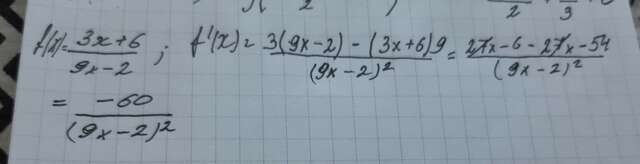 2 3
f(x)=\frac{3x+6}{9x-2}; f'(x)=\frac{3(9x-2)-(3x+6)9}{(9x-2)^2}=\frac{27x-6-27x-54}{(9x-2)^2}
=\frac{-60}{(9x-2)^2}